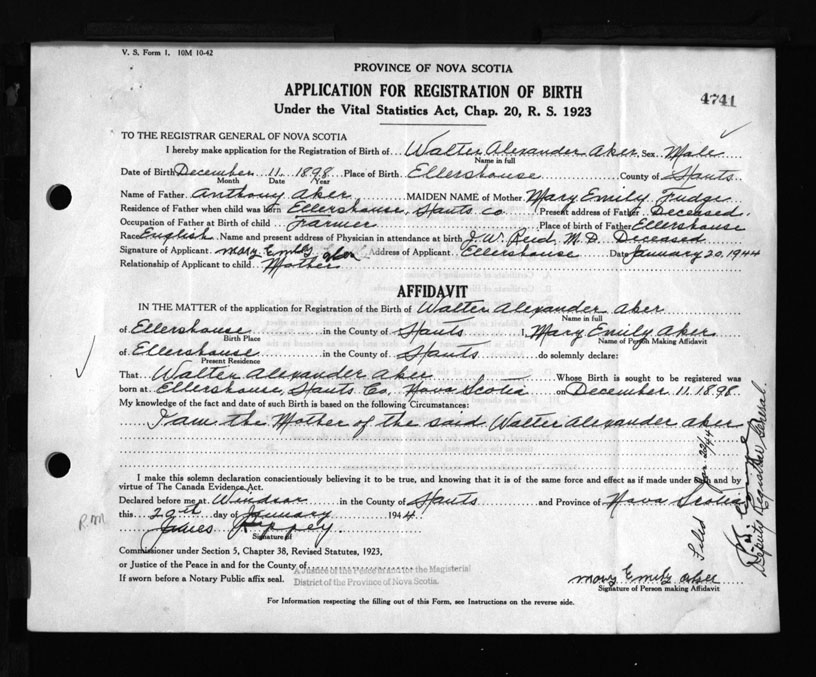 V. S. Form 1. 10M 10-42
PROVINCE OF NOVA SCOTIA
APPLICATION FOR REGISTRATION OF BIRTH
4741
Under the Vital Statistics Act, Chap. 20, R. S. 1923
TO THE REGISTRAR GENERAL OF NOVA SCOTIA
I hereby make application for the Registration of Birth of Walter Alexander Aker Sex Male
Name in full
Date of Birth December 11 1898 Place of Birth Ellershouse County of Hants
Month Date Year
Name of Father Anthony Aker MAIDEN NAME of Mother Mary Emily Fudge
Residence of Father when child was born Ellershouse, Hants Co Present address of Father Deceased
Occupation of Father at Birth of child Farmer Place of birth of Father Ellershouse
Race English Name and present address of Physician in attendance at birth J. W. Reid M.D. Deceased
Signature of Applicant Mary Emily Aker Address of Applicant Ellershouse Date January 20, 1944
Relationship of Applicant to child Mother
AFFIDAVIT
IN THE MATTER of the application for Registration of the Birth of Walter Alexander Aker
Name in full
of Ellershouse in the County of Hants I, Mary Emily Aker
Birth Place Name of Person Making Affidavit
of Ellershouse in the County of Hants do solemnly declare:
Present Residence
That Walter Alexander Aker Whose Birth is sought to be registered was
born at Ellershouse, Hants Co. Nova Scotia on December 11. 1898.
My knowledge of the fact and date of such Birth is based on the following Circumstances:
I am the Mother of the said Walter Alexander Aker
I make this solemn declaration conscientiously believing it to be true, and knowing that it is of the same force and effect as if made under oath and by
virtue of The Canada Evidence Act.
Declared before me at Windsor in the County of Hants and Province of Nova Scotia
this 20th day of January 1944
James
Signature of
Commissioner under Section 5, Chapter 38, Revised Statutes, 1923,
or Justice of the Peace in and for the County of
A Justice of the Peace in and for the Magisterial
District of the Province of Nova Scotia.
If sworn before a Notary Public affix seal.
Mary Emily Aker
Signature of Person making Affidavit
For Information respecting the filling out of this Form, see Instructions on the reverse side.
P.M.
Filed Jan. 22/44
Deputy Registrar General.